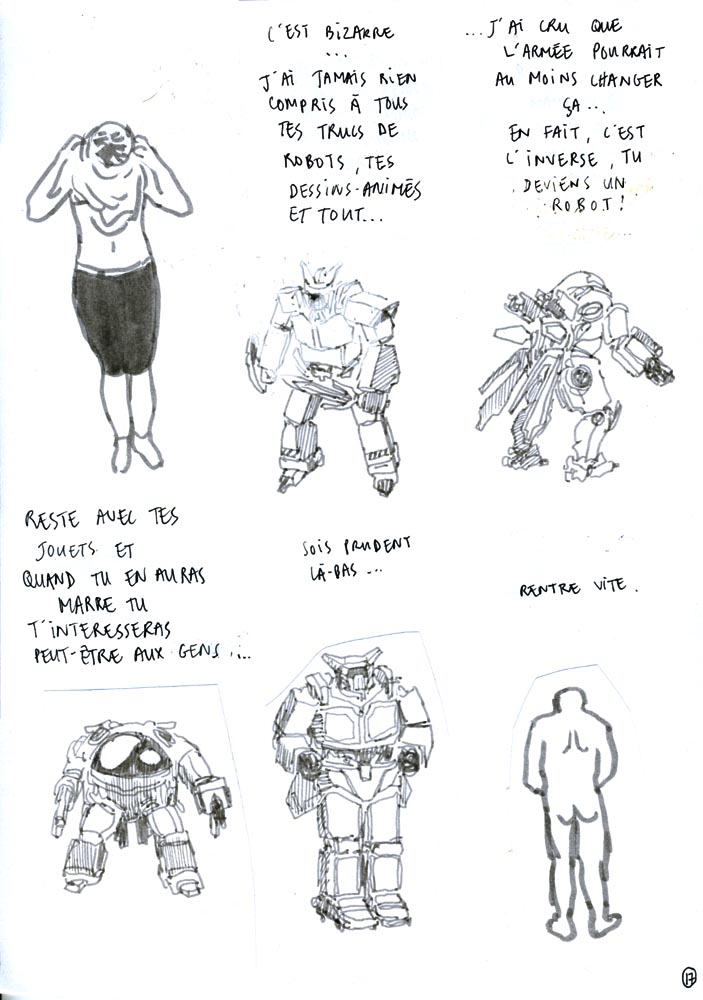 C'EST BIZARRE
...
J'AI JAMAIS RIEN
COMPRIS À TOUS
TES TRUCS DE
ROBOTS, TES
DESSINS-ANIMÉS
ET TOUT...
...J'AI CRU QUE
L'ARMÉE POURRAIT
AU MOINS CHANGER
ÇA...
EN FAIT, C'EST
L'INVERSE, TU
DEVIENS UN
ROBOT!
RESTE AVEC TES
JOUETS ET
QUAND TU EN AURAS
MARRE TU
T'INTERESSERAS
PEUT-ÊTRE AUX GENS...
SOIS PRUDENT
LÀ-BAS...
RENTRE VITE.
17